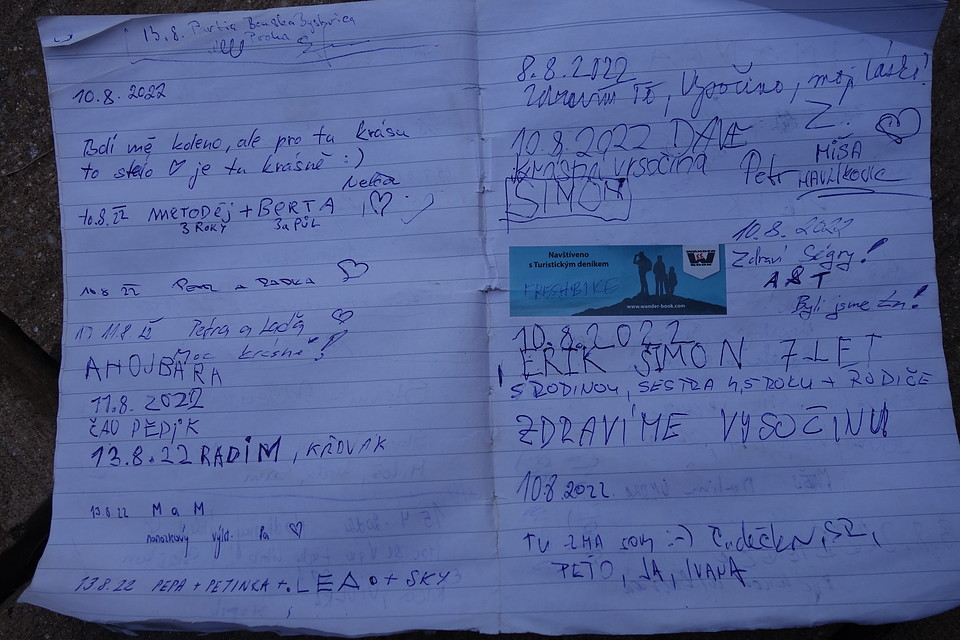 13.8. Partia Banska Bystrica
10.8.2022
Bolí mě koleno, ale pro tu krásu
to stálo ♡ je tu krásně :)
10.8.22 METODĚJ + BERTA ♡
3 ROKY 3 a PŮL
♡
11.8.22 Petra a Ladá ♡
Moc krásné!
AHOJ BÁRA
11.8.2022
ČAU PEPÍK
13.8.22 RADIM,
13.8.22 M a M
výlet. ♡
13.8.22 PEPA + PETINKA + LEA + SKY
8.8.2022
Zdravím Tě, Vysočino, moje lásko!
Z. ♡
10.8.2022 DAVE
krásná vysočina
MÍŠA
Petr HAVLÍKOVIC
SIMON
10.8.2022
Zdraví Ségry!
A S T
Byli jsme tu!
Navštíveno
s Turistickým deníkem
FRESHBIKE
www.wander-book.com
10.8.2022
ERIK ŠIMON 7-LET
S RODINOU, SESTRA 4,5 ROKU + RODIČE
ZDRAVÍME VYSOČINU!
10.8.2022
TU SMA SOM :-)
PEŤO, JA, IVANA